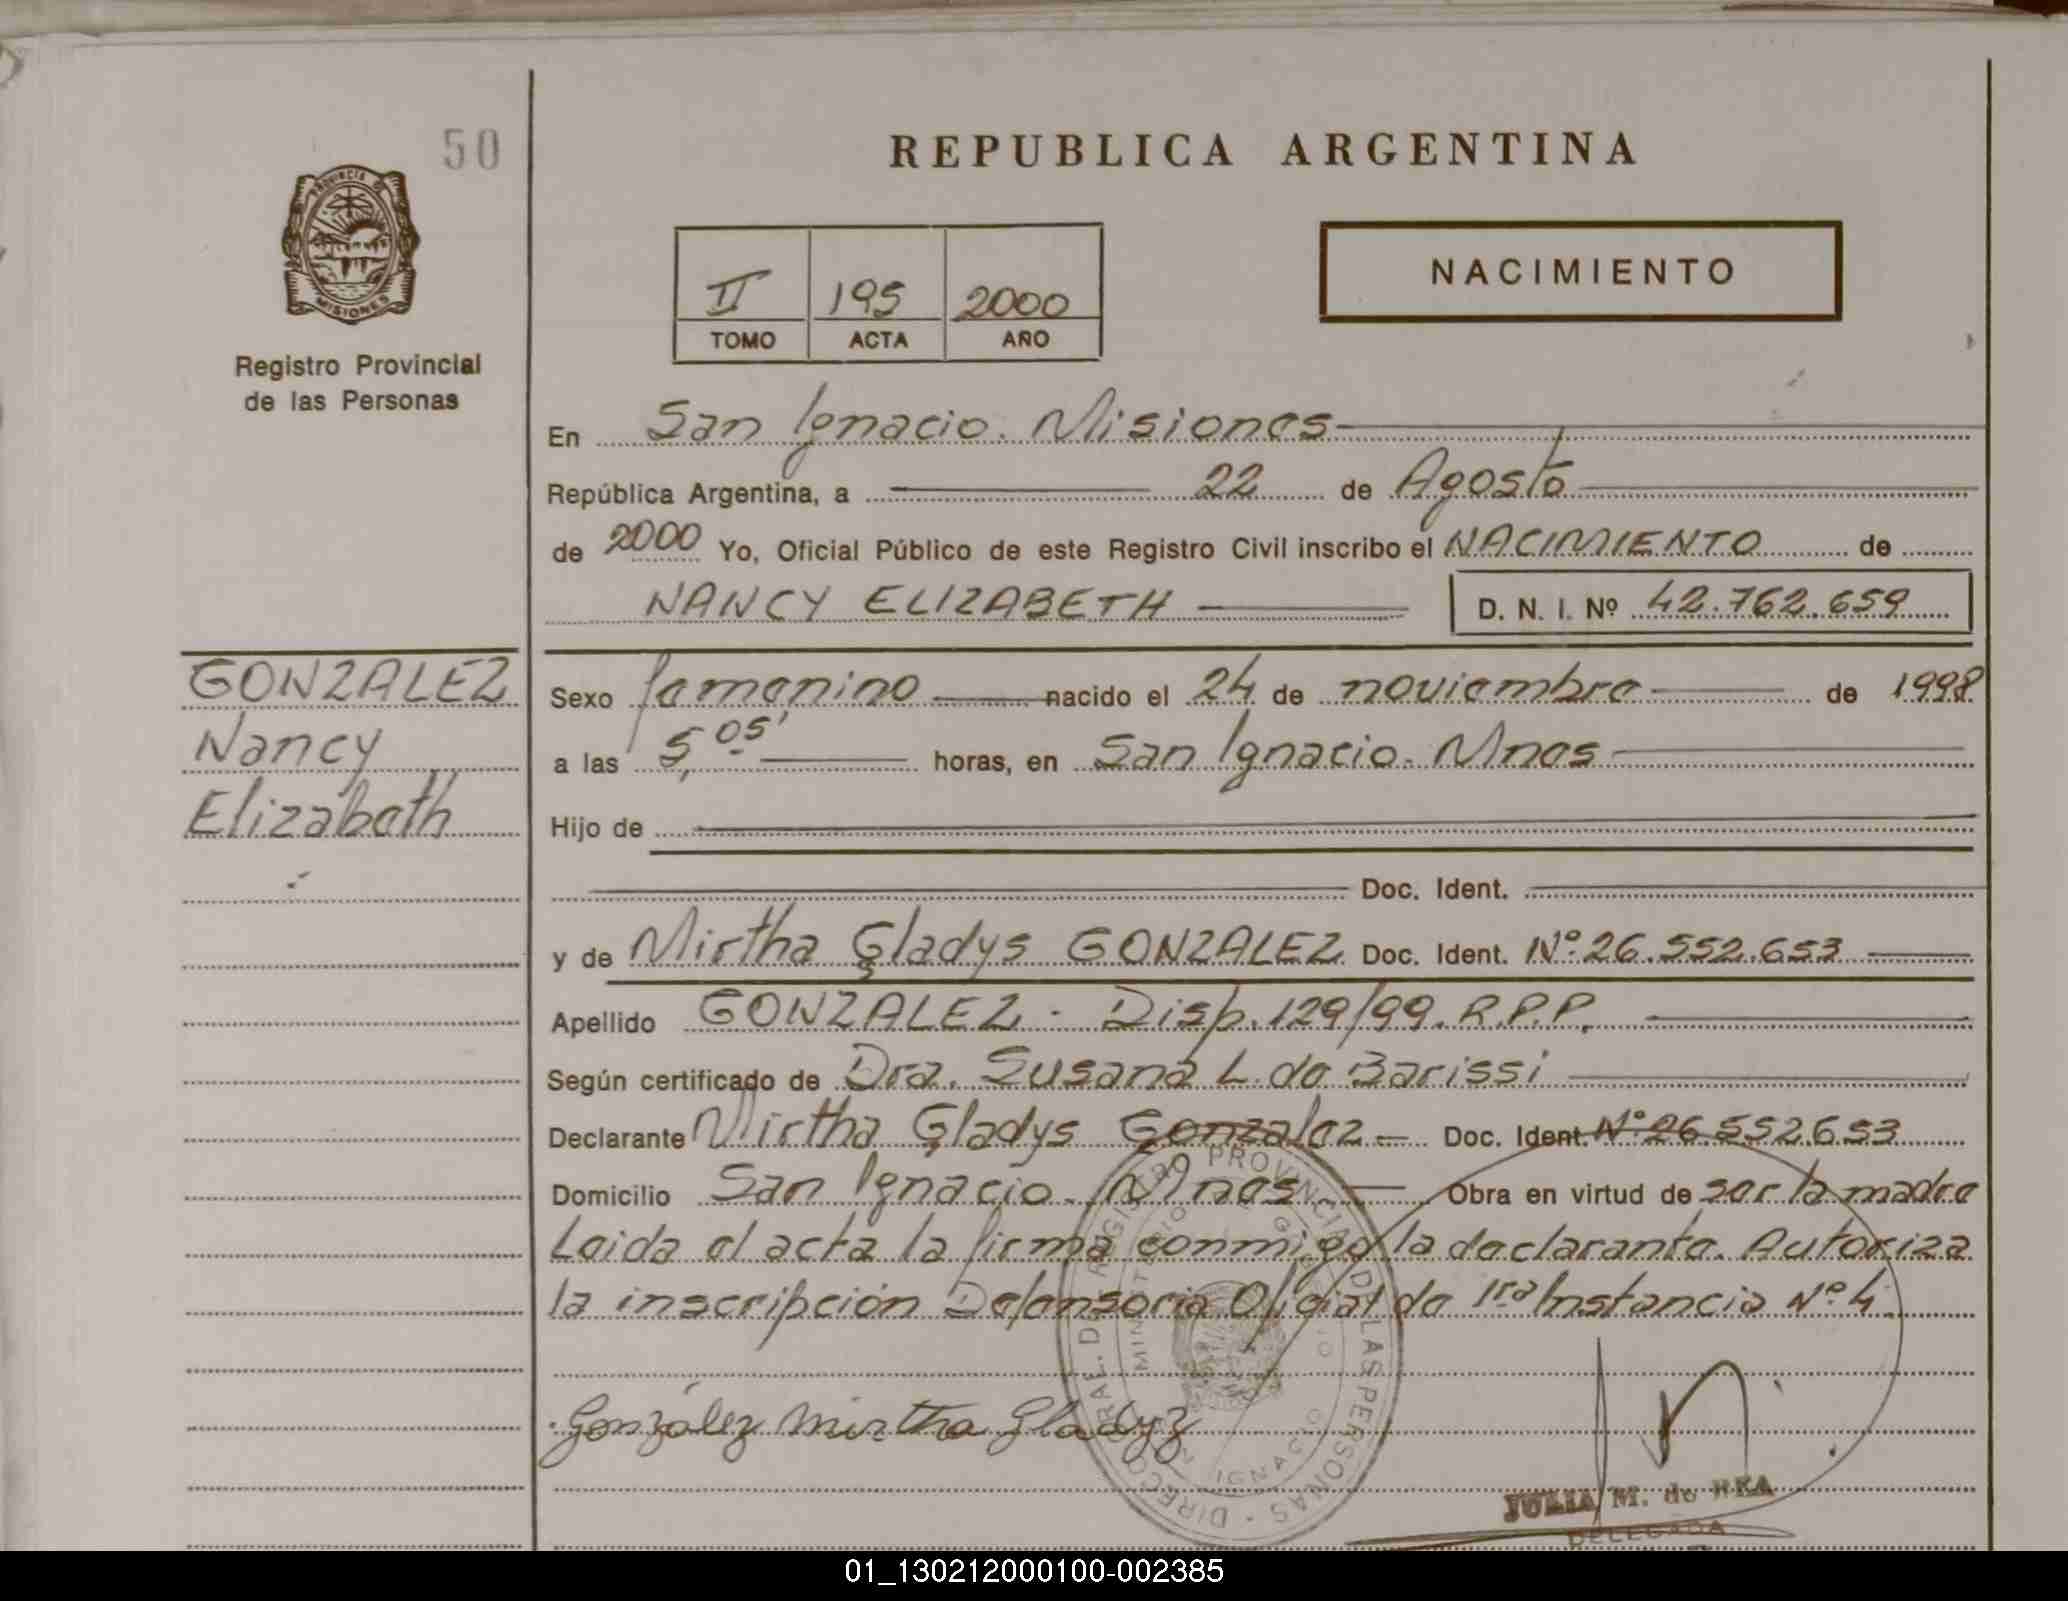 50
REPUBLICA ARGENTINA
PROVINCIA DE
MISIONES
Registro Provincial
de las Personas
II 195 2000
TOMO ACTA AÑO
NACIMIENTO
En San Ignacio. Misiones
República Argentina, a 22 de Agosto
de 2000 Yo, Oficial Público de este Registro Civil inscribo el NACIMIENTO de
NANCY ELIZABETH D. N. I. Nº 42.762.659
GONZALEZ
Nancy
Elizabeth
Sexo femenino nacido el 24 de noviembre de 1998
a las 5,05' horas, en San Ignacio. Mnes
Hijo de
Doc. Ident.
y de Mirtha Gladys GONZALEZ Doc. Ident. Nº 26.552.653
Apellido GONZALEZ - Disp. 129/99. R.P.P.
Según certificado de Dra. Susana L. de Barissi
Declarante Mirtha Gladys Gonzalez Doc. Ident. Nº 26.552.653
Domicilio San Ignacio. Mnes Obra en virtud de ser la madre
Leida el acta la firma conmigo la declarante. Autoriza
la inscripción Defensoria Oficial de 1ra Instancia Nº 4.
González Mirtha Gladyz
JULIA M. de REA
DELEGADA
01_130212000100-002385